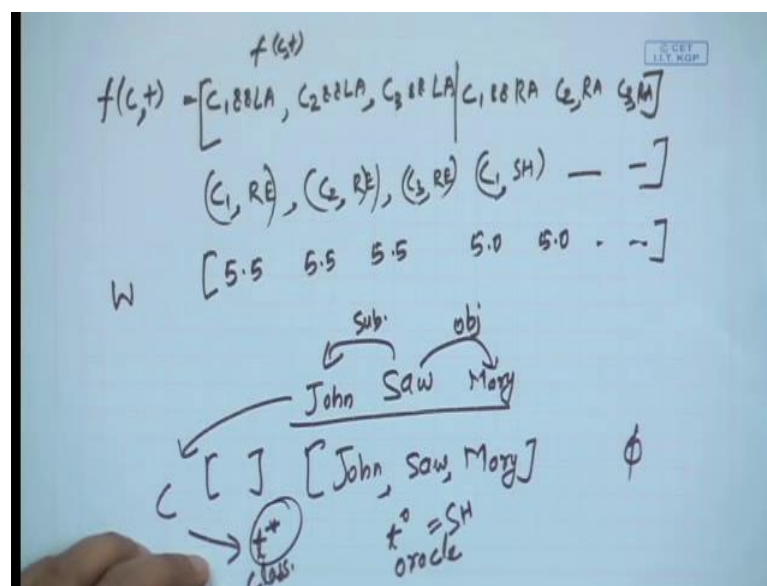 f(c,t)
© CET
I.I.T. KGP
f(c,t) = [C₁&&LA, C₂&&LA, C₃&&LA | C₁&&RA C₂,RA C₃,RA]
(C₁, RE), (C₂, RE), (C₃, RE) (C₁, SH) — –]
W [5.5 5.5 5.5 5.0 5.0 . –]
sub. obj
John Saw Mary
C [ ] [John, Saw, Mary] ϕ
t* t° = SH
class. oracle